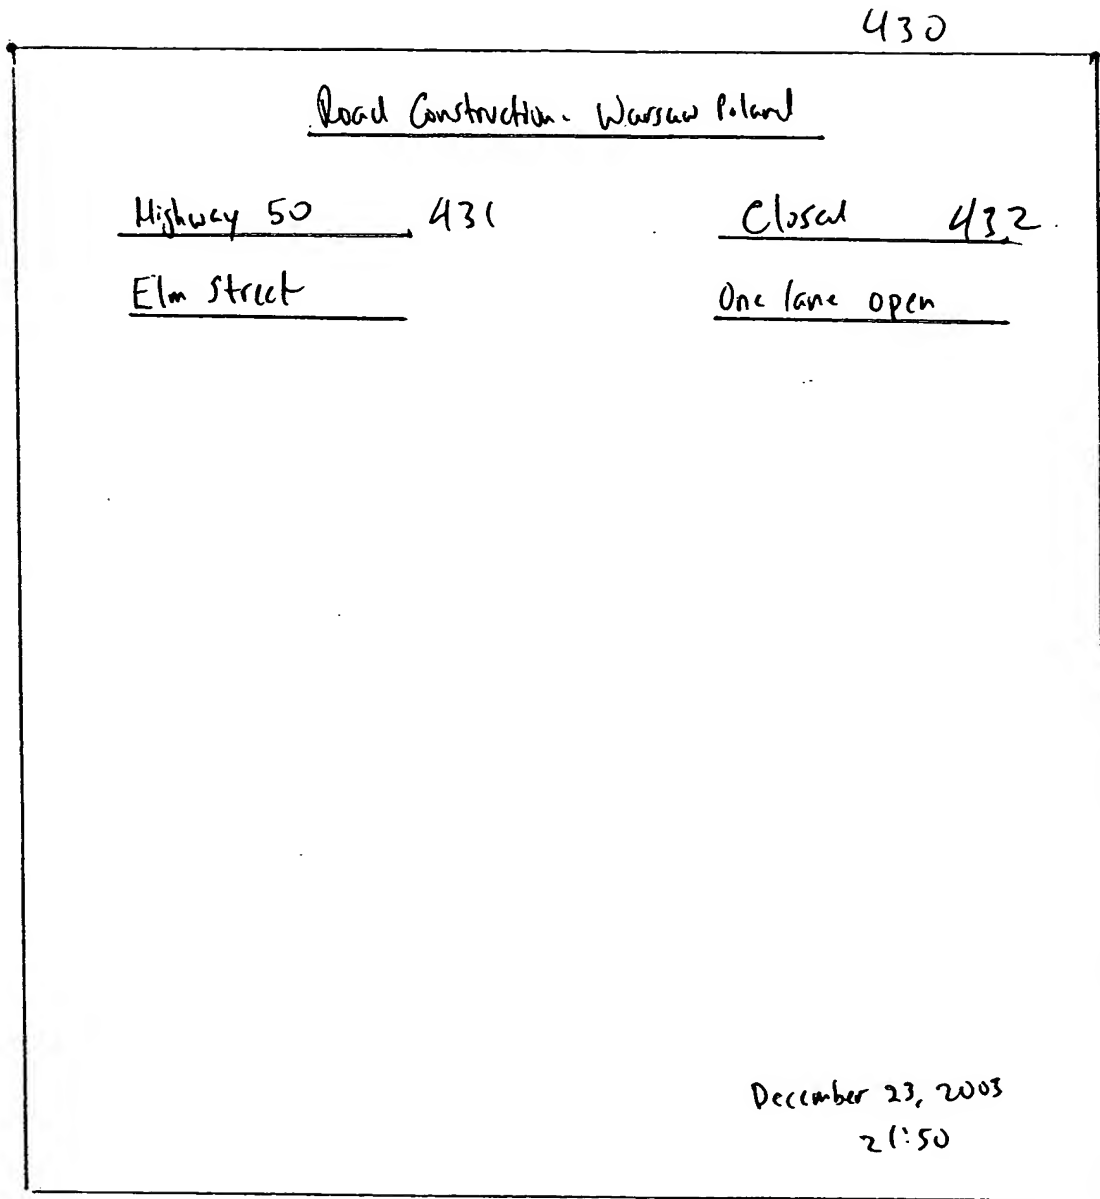 430
Road Construction. Warsaw Poland
Highway 50 431 Closed 432
Elm Street One lane open
December 23, 2003
21:50